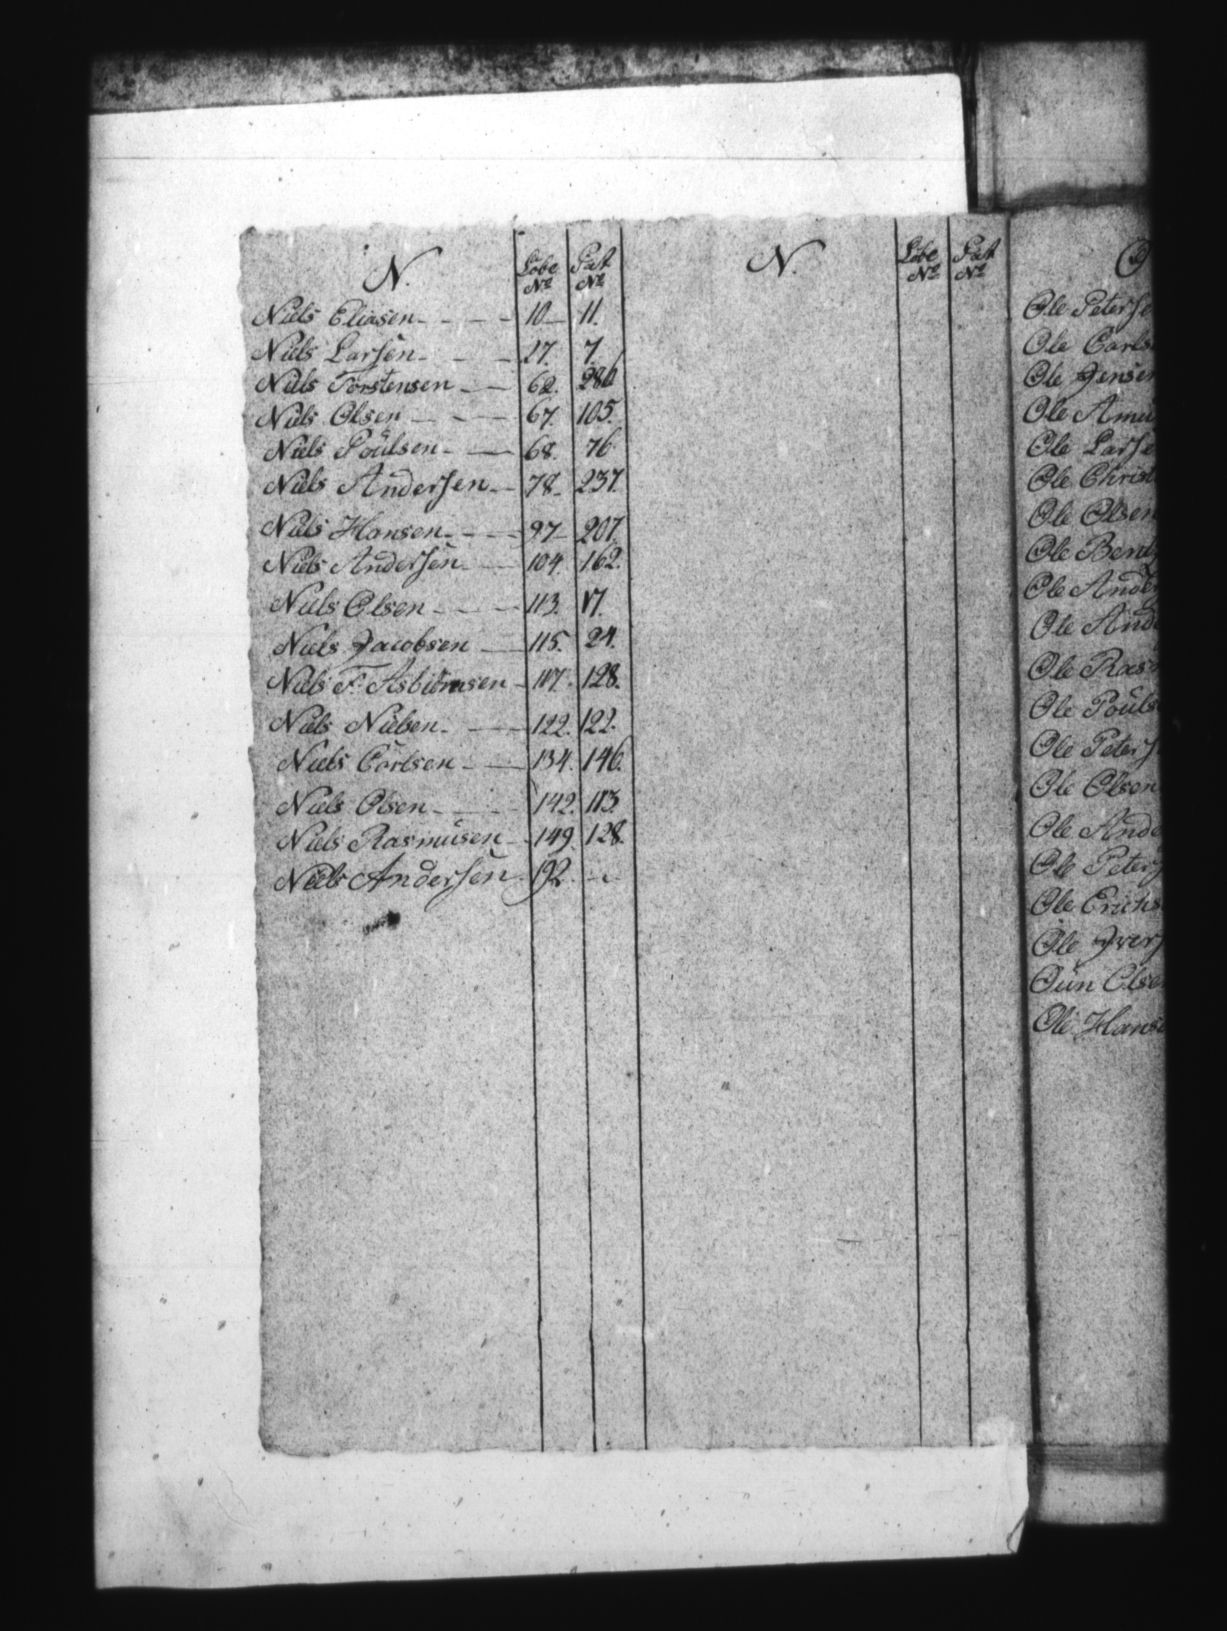 N. Løbe No Pat No
Niels Eliasen 10 11.
Niels Larsen 27. 7.
Niels Torstensen 62. 286
Niels Olsen 67. 105.
Niels Poulsen 68. 76
Niels Andersen 78. 237.
Niels Hansen 97 207.
Niels Andersen 104. 162.
Niels Olsen 113. 17.
Niels Jacobsen 115. 24.
Niels F. Asbiörnsen 117. 128.
Niels Nielsen 122. 122.
Niels Carlsen 134. 146.
Niels Olsen 142. 113.
Niels Rasmusen 149. 128.
Niels Andersen 192.
N. Løbe No Pat No
O
Ole Peterse
Ole Carls
Ole Jensen
Ole Amu
Ole Larse
Ole Christ
Ole Olsen
Ole Bent
Ole Ande
Ole And
Ole Ras
Ole Pouls
Ole Peters
Ole Olsen
Ole Ande
Ole Peters
Ole Erichs
Ole Ivers
Oun Olse
Ole Hans